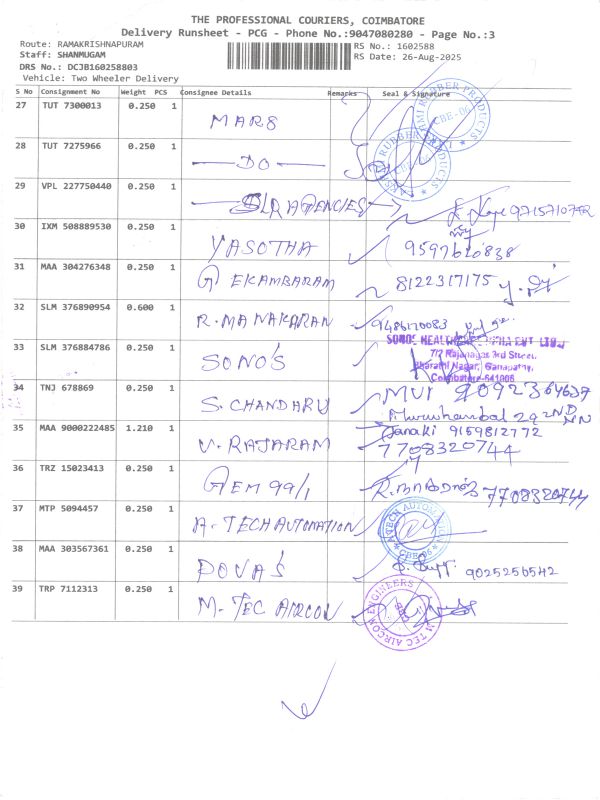 THE PROFESSIONAL COURIERS, COIMBATORE
Delivery Runsheet - PCG - Phone No.:9047080280 - Page No.:3
Route: RAMAKRISHNAPURAM
RS No.: 1602588
Staff: SHANMUGAM
RS Date: 26-Aug-2025
DRS No.: DCJB160258803
Vehicle: Two Wheeler Delivery
S No Consignment No Weight PCS Consignee Details Remarks Seal & Signature
27 TUT 7300013 0.250 1 MARS
CBE-06
28 TUT 7275966 0.250 1 DO
RUBBER PRODUCTS
29 VPL 227750440 0.250 1 SLR AGENCIES
30 IXM 508889530 0.250 1 YASOTHA 9597610838
31 MAA 304276348 0.250 1 G EKAMBARAM 8122317175
32 SLM 376890954 0.600 1 R. MANAKARAN 9486170083
33 SLM 376884786 0.250 1 SONO'S
7/2 Rajanagar 3rd Street,
Bharathi Nagar, Ganapathy,
Coimbatore-641006
34 TNJ 678869 0.250 1 S. CHANDARU
35 MAA 9000222485 1.210 1 V. RAJARAM Janaki 9159812772
7708320744
36 TRZ 15023413 0.250 1 GEM 99/1 7708320744
37 MTP 5094457 0.250 1 A-TECH AUTOMATION
A TECH AUTOMATION CBE-06
38 MAA 303567361 0.250 1 DOVA'S 9025256542
39 TRP 7112313 0.250 1 M-TEC AIRCON
M TEC AIRCON ENGINEERS